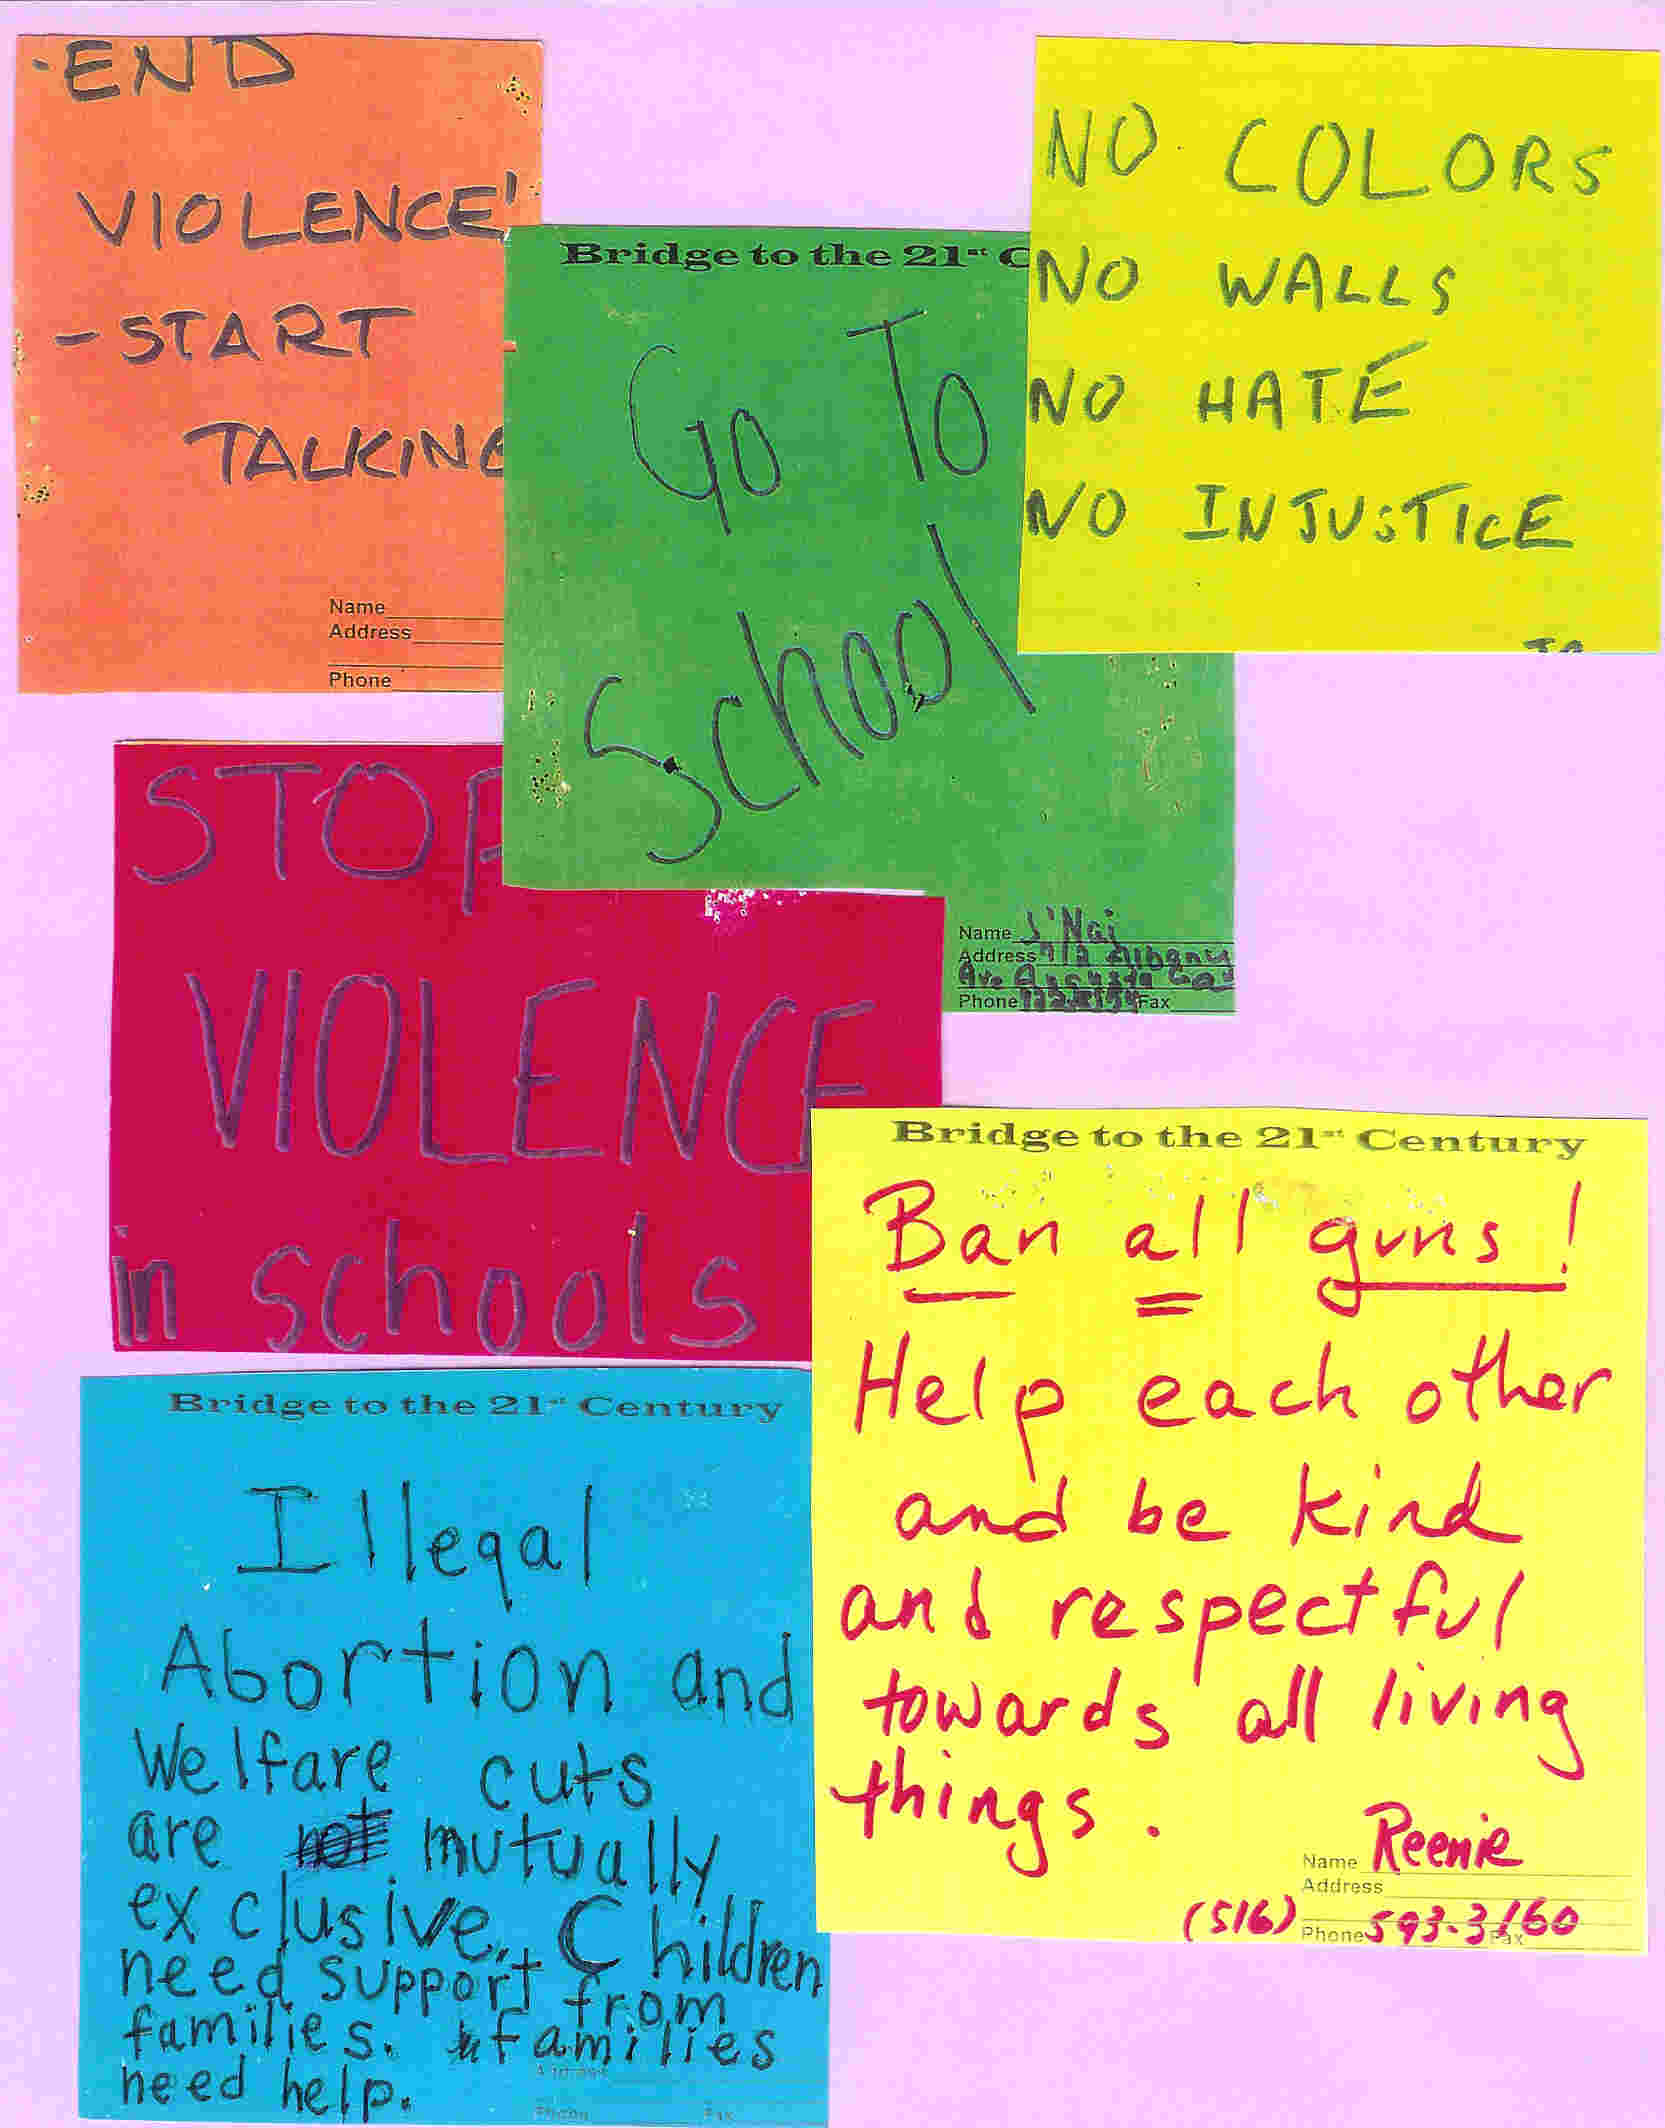 ·END
VIOLENCE'
-START
TALKING
Name
Address
Phone
Bridge to the 21st C
Go To
School
Name J'Nai
Address 712 Albany
Ave
Phone Fax
NO COLORS
NO WALLS
NO HATE
NO INJUSTICE
STOP
VIOLENCE
in schools
Bridge to the 21st Century
Ban all guns!
Help each other
and be kind
and respectful
towards all living
things.
Name Reenie
Address
(516)
Phone 593-3160 Fax
Bridge to the 21st Century
Illegal
Abortion and
Welfare cuts
are not mutually
exclusive. Children
need support from
families. families
need help.
Address
Phone Fax